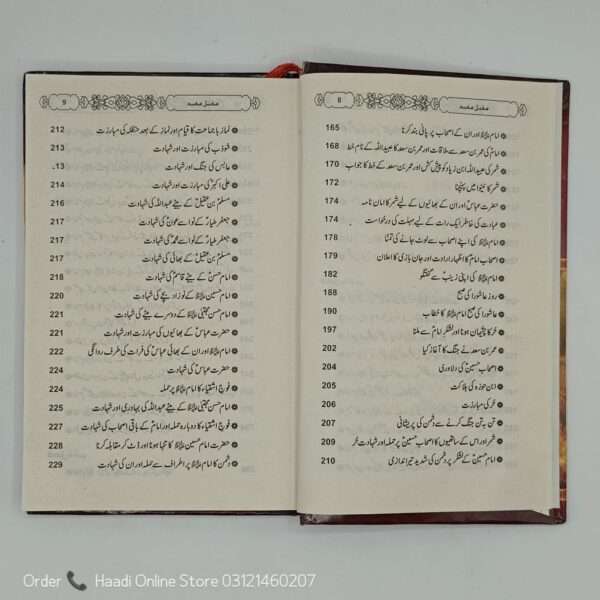 مقتل مفید 8
امام علیہ السلام اور ان کے اصحاب پر پانی بند کرنا 165
امام کی عمر بن سعد سے ملاقات اور عمر بن سعد کا عبید اللہ کے نام خط 168
شمر کی عبید اللہ ابن زیاد کو پیش کش اور عمر بن سعد کے خط کا جواب
شمر کا نینوا میں پہنچنا 172
حضرت عباس اور ان کے بھائیوں کے لیے شمر کا امان نامہ 174
عبادت کی خاطر ایک رات کے لیے مہلت کی درخواست 174
امام علیہ السلام کی اپنے اصحاب سے لوٹ جانے کی تمنا 178
اصحاب امام کا اظہار ارادت اور جان بازی کا اعلان 179
امام علیہ السلام کی اپنی زینب سے گفتگو 182
روز عاشورا کی صبح 188
عاشورا کی صبح امام علیہ السلام کا خطاب 190
حر کا پشیمان ہونا اور لشکر امام سے ملنا 197
عمر بن سعد نے جنگ کا آغاز کیا 202
اصحاب حسین کی دلاوری 204
ابن حوزہ کی ہلاکت 205
حر کی مبارزت 206
تن بہ تن جنگ کرنے سے دشمن کی پریشانی 207
شمر اور اس کے ساتھیوں کا اصحاب حسین پر حملہ اور شہادت حر 209
امام حسین کے لشکر پر دشمن کی شدید تیر اندازی 210
مقتل مفید 9
نماز با جماعت کا قیام اور نماز کے بعد حنظلہ کی مبارزت 212
شوذب کی مبارزت اور شہادت 213
عابس کی جنگ اور شہادت 13.
علی اکبر کی مبارزت اور شہادت 214
مسلم بن عقیل کے بیٹے عبد اللہ کی شہادت 216
جعفر طیار کے نواسے عون کی شہادت 217
جعفر طیار کے نواسے محمد کی شہادت 217
مسلم بن عقیل کے بھائی کی شہادت 217
امام حسن کے بیٹے قاسم کی شہادت 218
امام حسین علیہ السلام کے نوزاد بچے کی شہادت 220
امام حسن مجتبیٰ کے دوسرے بیٹے کی شہادت 221
حضرت عباس کے بھائیوں کی مبارزت اور شہادت 221
امام علیہ السلام اور ان کے بھائی عباس کی فرات کی طرف روانگی 222
حضرت عباس کی شہادت 224
فوج اشقیاء کا امام علیہ السلام پر حملہ 224
امام حسن مجتبیٰ کے بیٹے عبد اللہ کی بہادری اور شہادت 225
فوج اشقیاء کا دوبارہ حملہ اور امام کے باقی اصحاب کی شہادت 227
حضرت امام حسین علیہ السلام کا تنہا ہونا اور ڈٹ کر مقابلہ کرنا 228
دشمن کا امام علیہ السلام پر اطراف سے حملہ اور ان کی شہادت 229
Order Haadi Online Store 03121460207